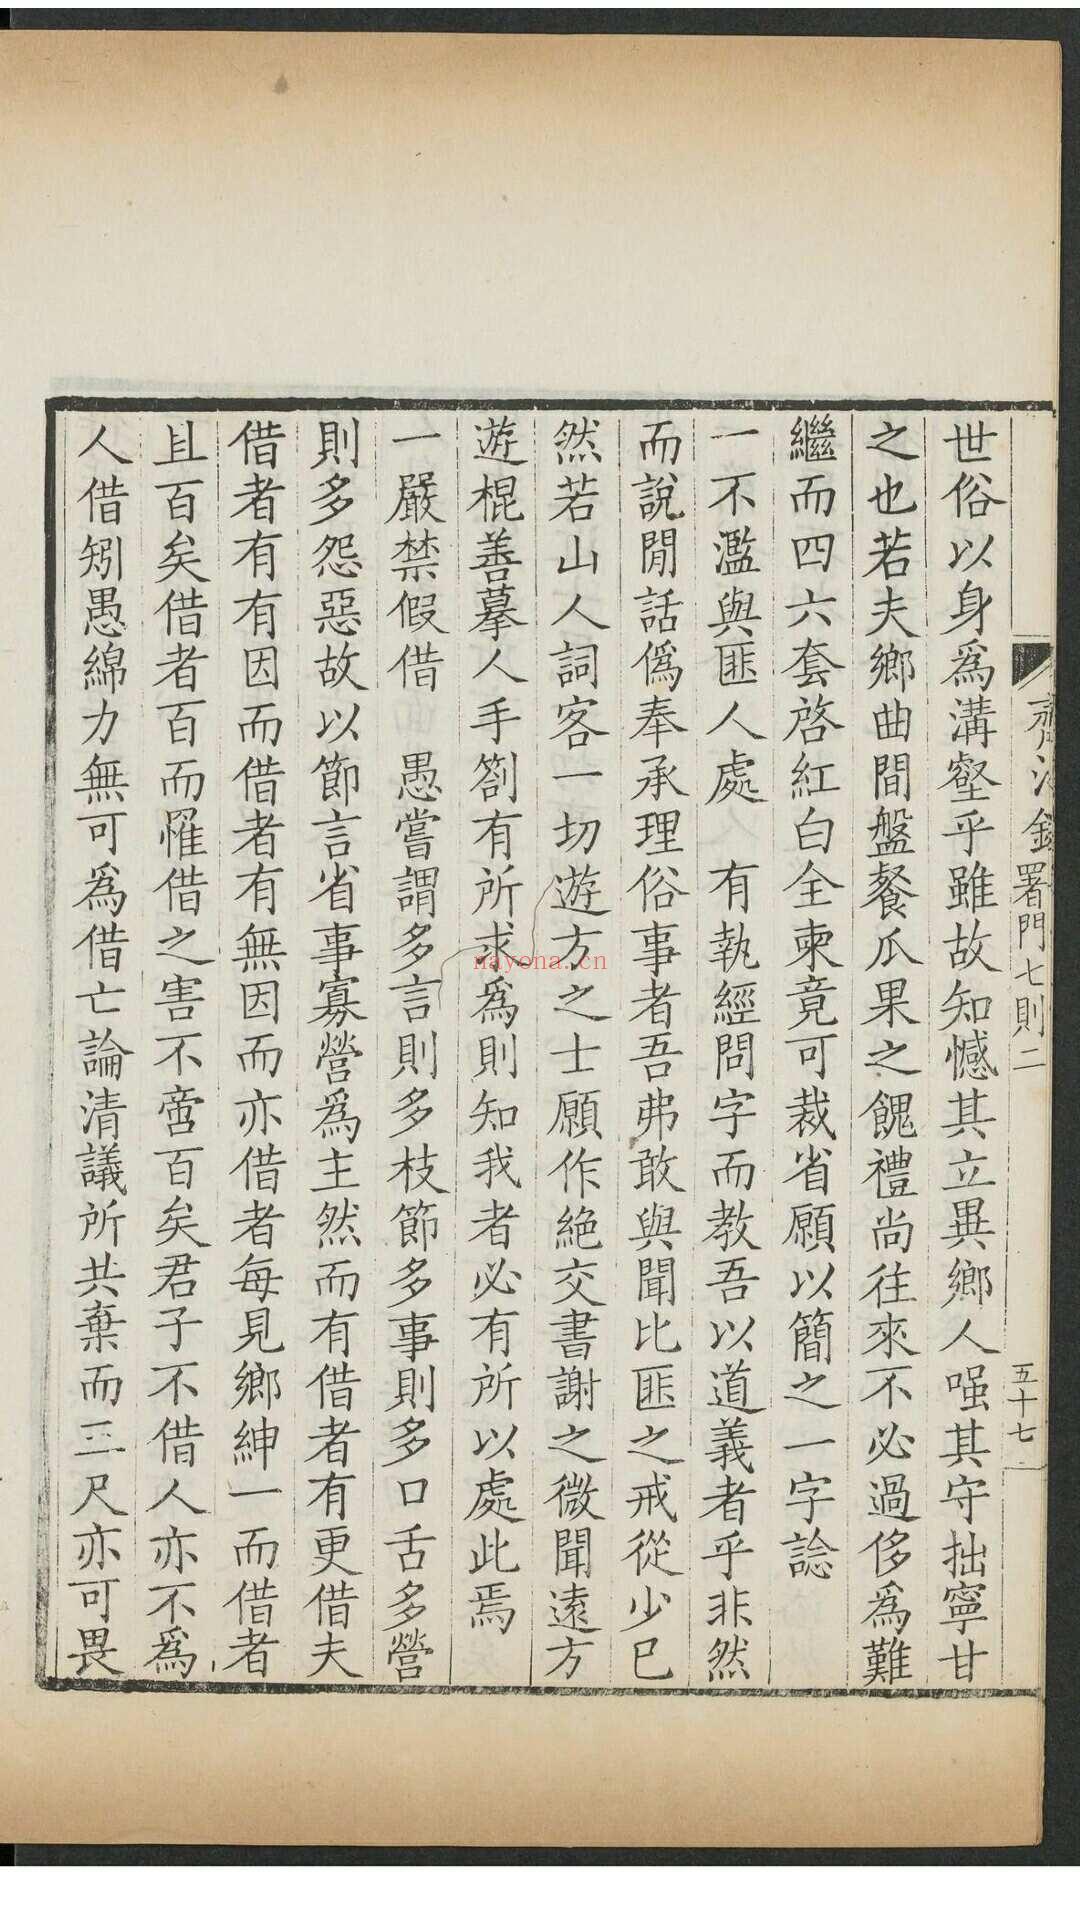 齊治錄 署門七則二 五十七
世俗以身爲溝壑乎雖故知憾其立異鄉人嗤其守拙寧甘
之也若夫鄉曲間盤餐瓜果之餽禮尚往來不必過侈爲難
繼而四六套啓紅白全柬竟可裁省願以簡之一字諗
一不濫與匪人處 有執經問字而教吾以道義者乎非然
而說閒話僞奉承理俗事者吾弗敢與聞比匪之戒從少已
然若山人詞客一切遊方之士願作絕交書謝之微聞遠方
遊棍善摹人手劄有所求爲則知我者必有所以處此焉
一嚴禁假借 愚嘗謂多言則多枝節多事則多口舌多營
則多怨惡故以節言省事寡營爲主然而有借者有更借夫
借者有有因而借者有無因而亦借者每見鄉紳一而借者
且百矣借者百而罹借之害不啻百矣君子不借人亦不爲
人借矧愚綿力無可爲借亡論清議所共棄而三尺亦可畏
nayona.cn